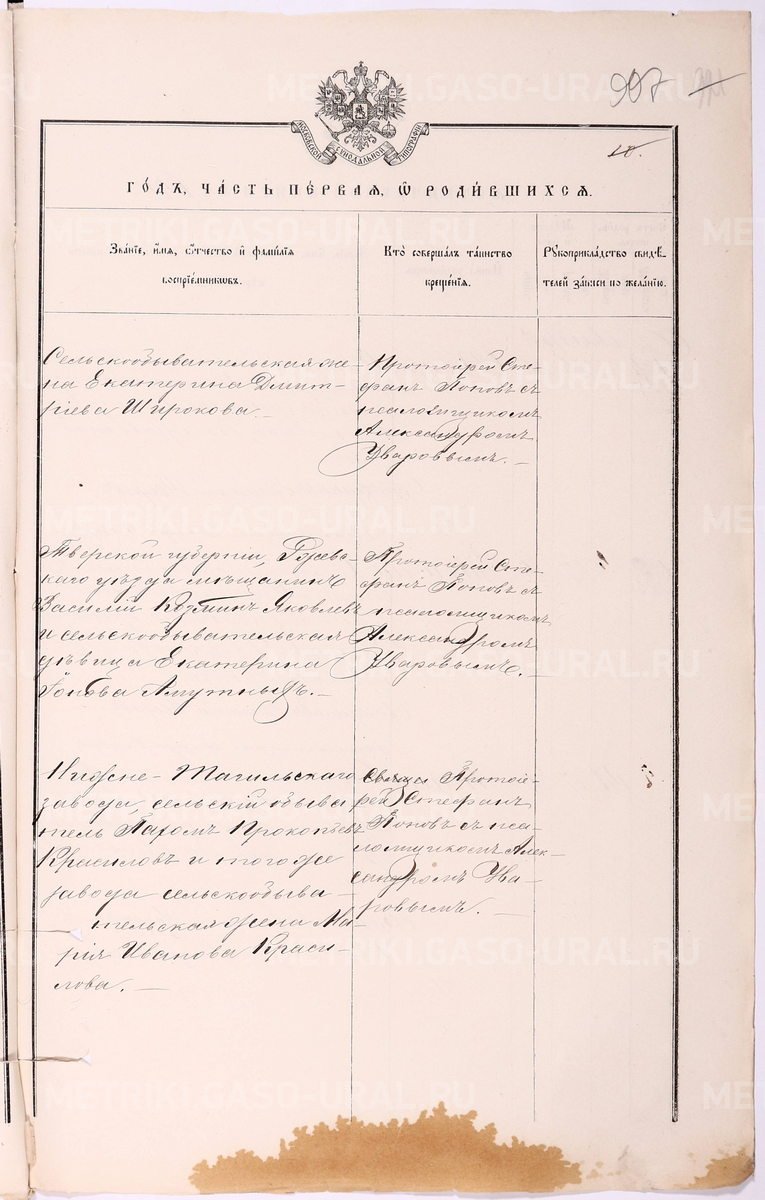 907
10.
МОСКОВСКОЙ СѴНОДАЛЬНОЙ ТИПОГРАФІИ
ГО́ДЪ, ЧА́СТЬ ПЕ́РВАЯ, Ѿ РОДИ́ВШИХСѦ.
Зва́нїе, и́мѧ, ѻ҆́тчество и҆ фами́лїѧ
воспрїе́мниковъ.
Кто̀ соверша́лъ та́инство
креще́нїѧ.
Рꙋкоприкла́дство свидѣ́-
телей за́писи по жела́нїю.
Сельскообывательская же-
на Екатерина Дмит-
ріева Широкова
Протоіерей Сте-
фанъ Поповъ съ
псаломщикомъ
Александромъ
Уваровымъ. —
Тверской губерніи, Ржевс-
каго уѣзда мѣщанинъ
Василій Козминъ Яковлевъ
и сельскообывательская
дѣвица Екатерина
Іонова Амутныхъ. —
Протоіерей Сте-
фанъ Поповъ съ
псаломщикомъ
Александромъ
Уваровымъ. —
Нижне-Тагильскаго
завода, сельскій обыва
тель Пахомъ Прокопьевъ
Красиловъ и того же
завода сельскообыва-
тельская жена Ма-
рія Иванова Краси-
лова. —
Протоіе-
рей Стефанъ
Поповъ съ пса-
ломщикомъ Алек-
сандромъ Ува-
ровымъ. —
METRIKI.GASO-URAL.RU